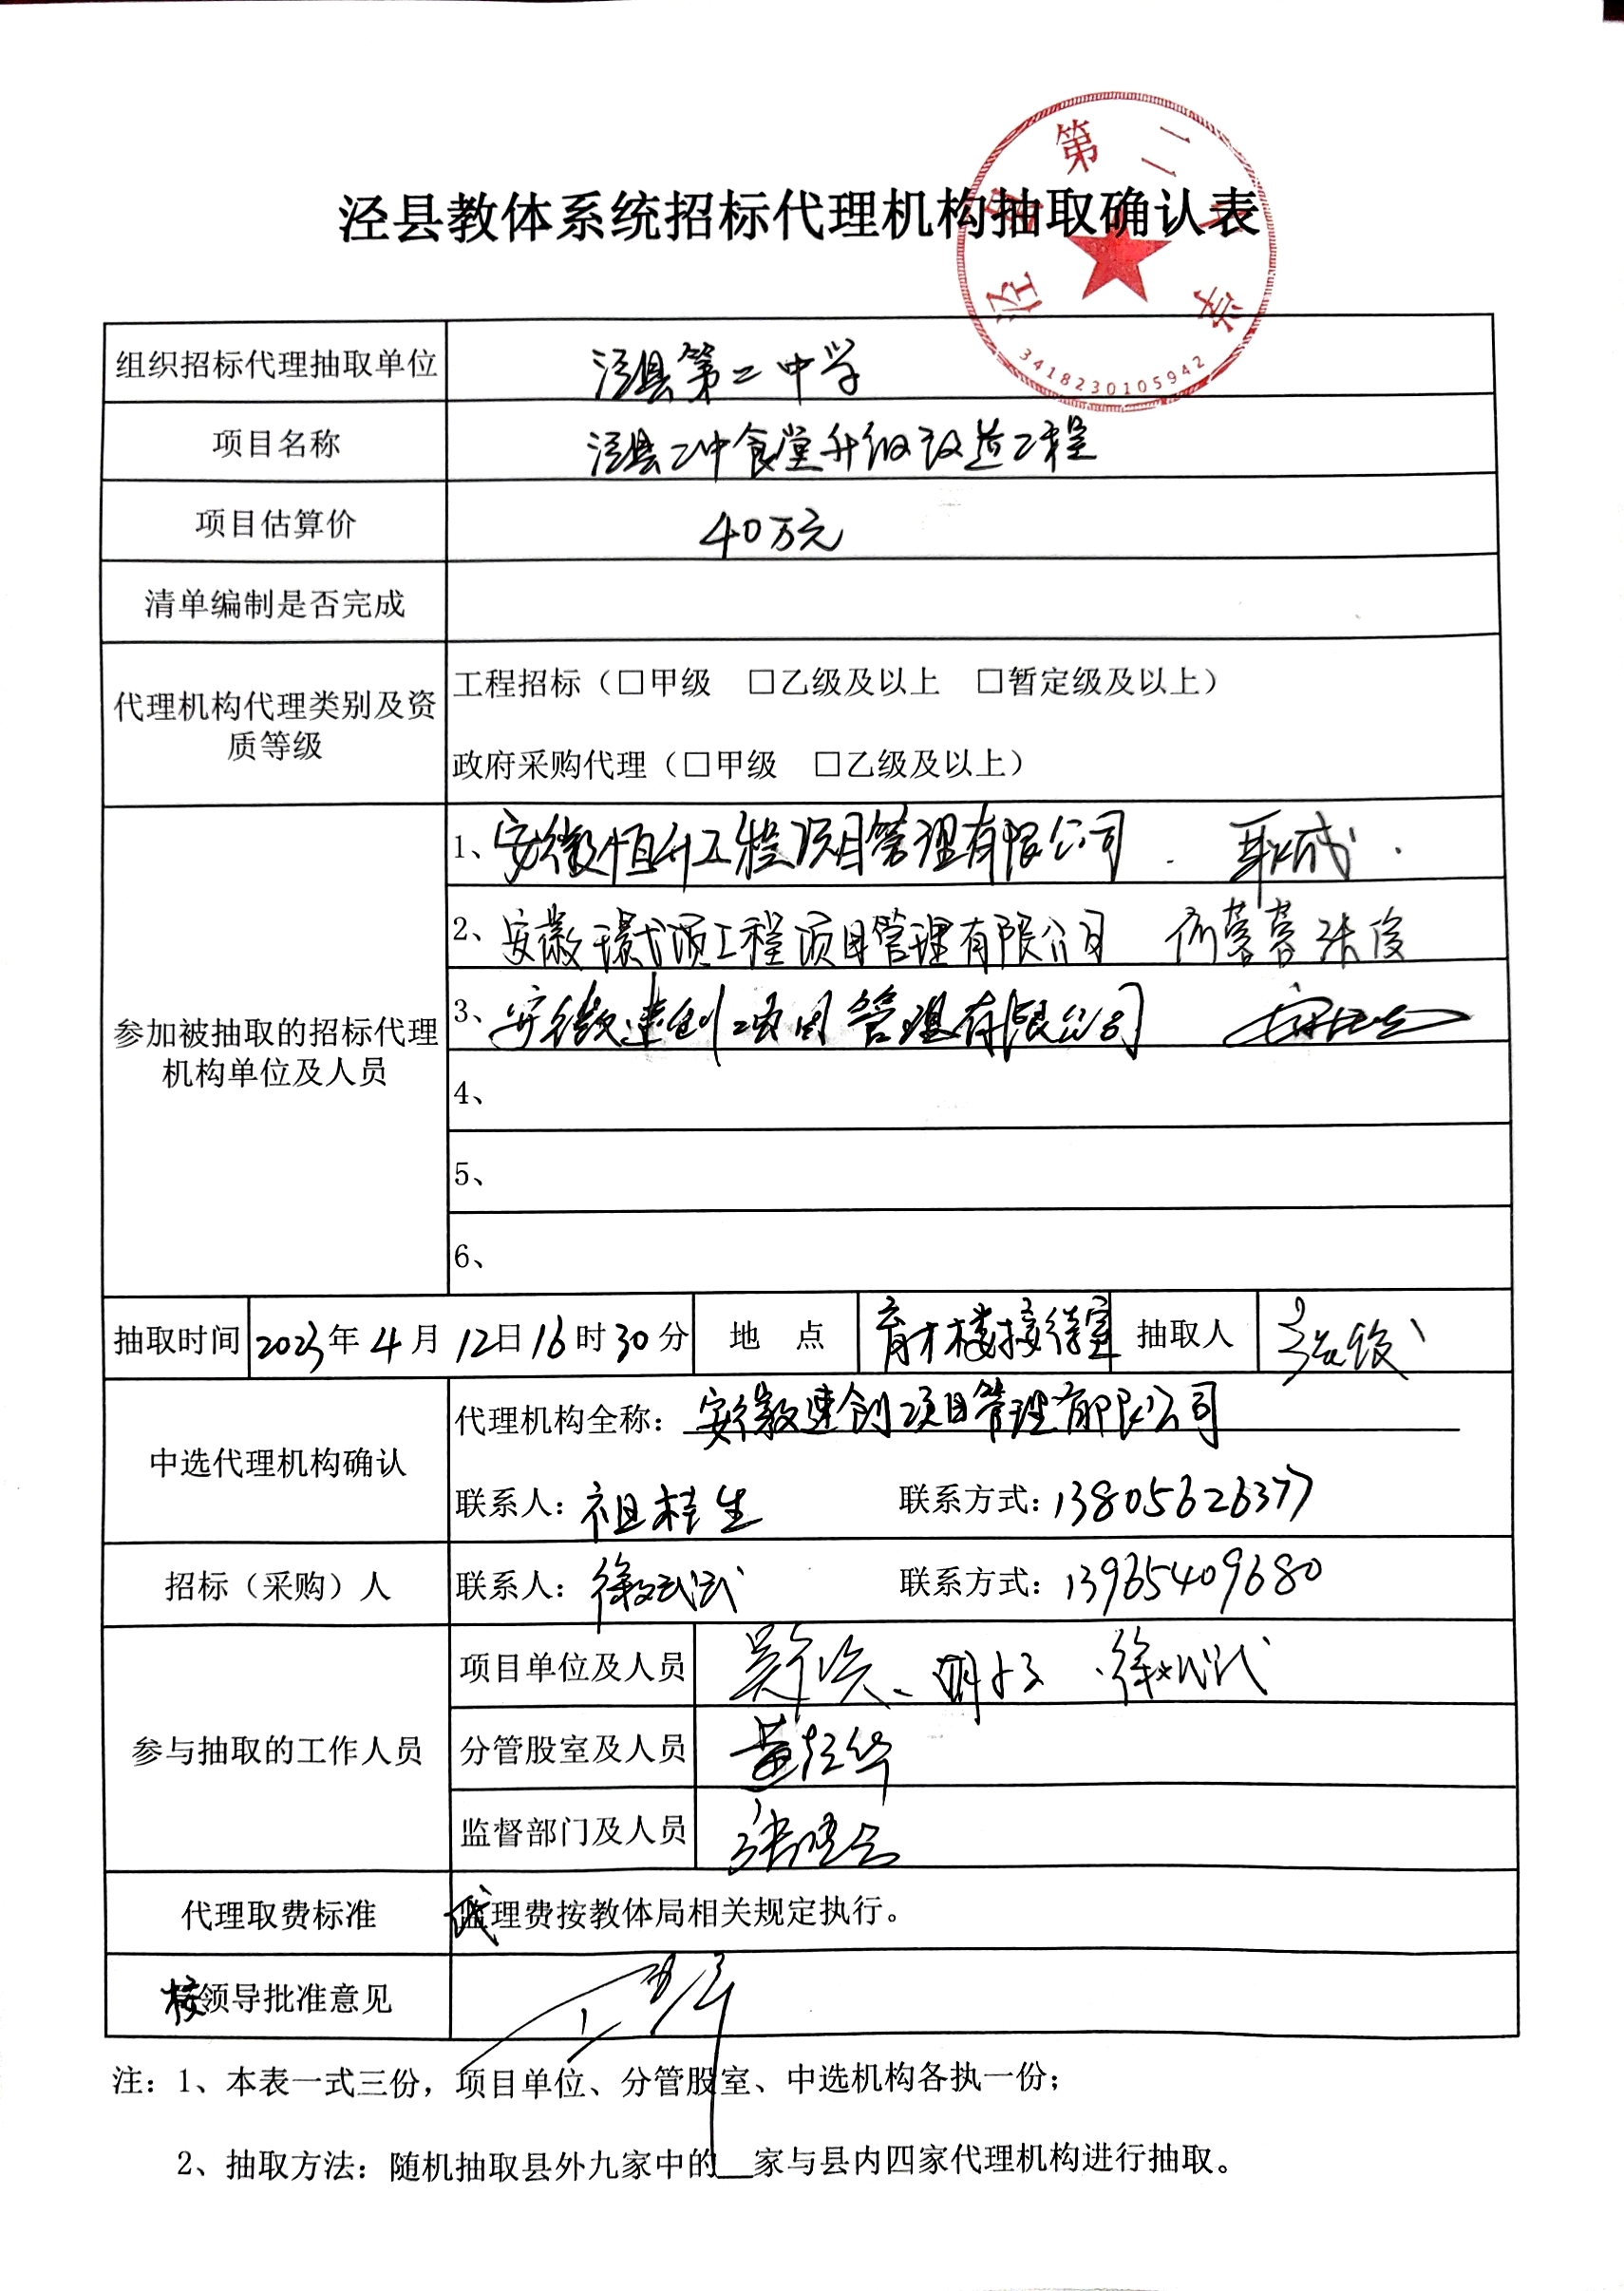 泾县第二中学
3418230105942
泾县教体系统招标代理机构抽取确认表
组织招标代理抽取单位 泾县第二中学
项目名称 泾县二中食堂升级改造工程
项目估算价 40万元
清单编制是否完成
代理机构代理类别及资质等级
工程招标（□甲级 □乙级及以上 □暂定级及以上）
政府采购代理（□甲级 □乙级及以上）
参加被抽取的招标代理机构单位及人员
1、安徽恒升工程项目管理有限公司
2、安徽 工程项目管理有限公司
3、安徽速创项目管理有限公司
4、
5、
6、
抽取时间 2023年4月12日16时30分 地 点 育才楼接待室 抽取人
中选代理机构确认
代理机构全称：安徽速创项目管理有限公司
联系人：祖桂生 联系方式：13805626377
招标（采购）人 联系人： 联系方式：13965409680
参与抽取的工作人员
项目单位及人员
分管股室及人员
监督部门及人员
代理取费标准 代理费按教体局相关规定执行。
校领导批准意见
注：1、本表一式三份，项目单位、分管股室、中选机构各执一份；
2、抽取方法：随机抽取县外九家中的__家与县内四家代理机构进行抽取。